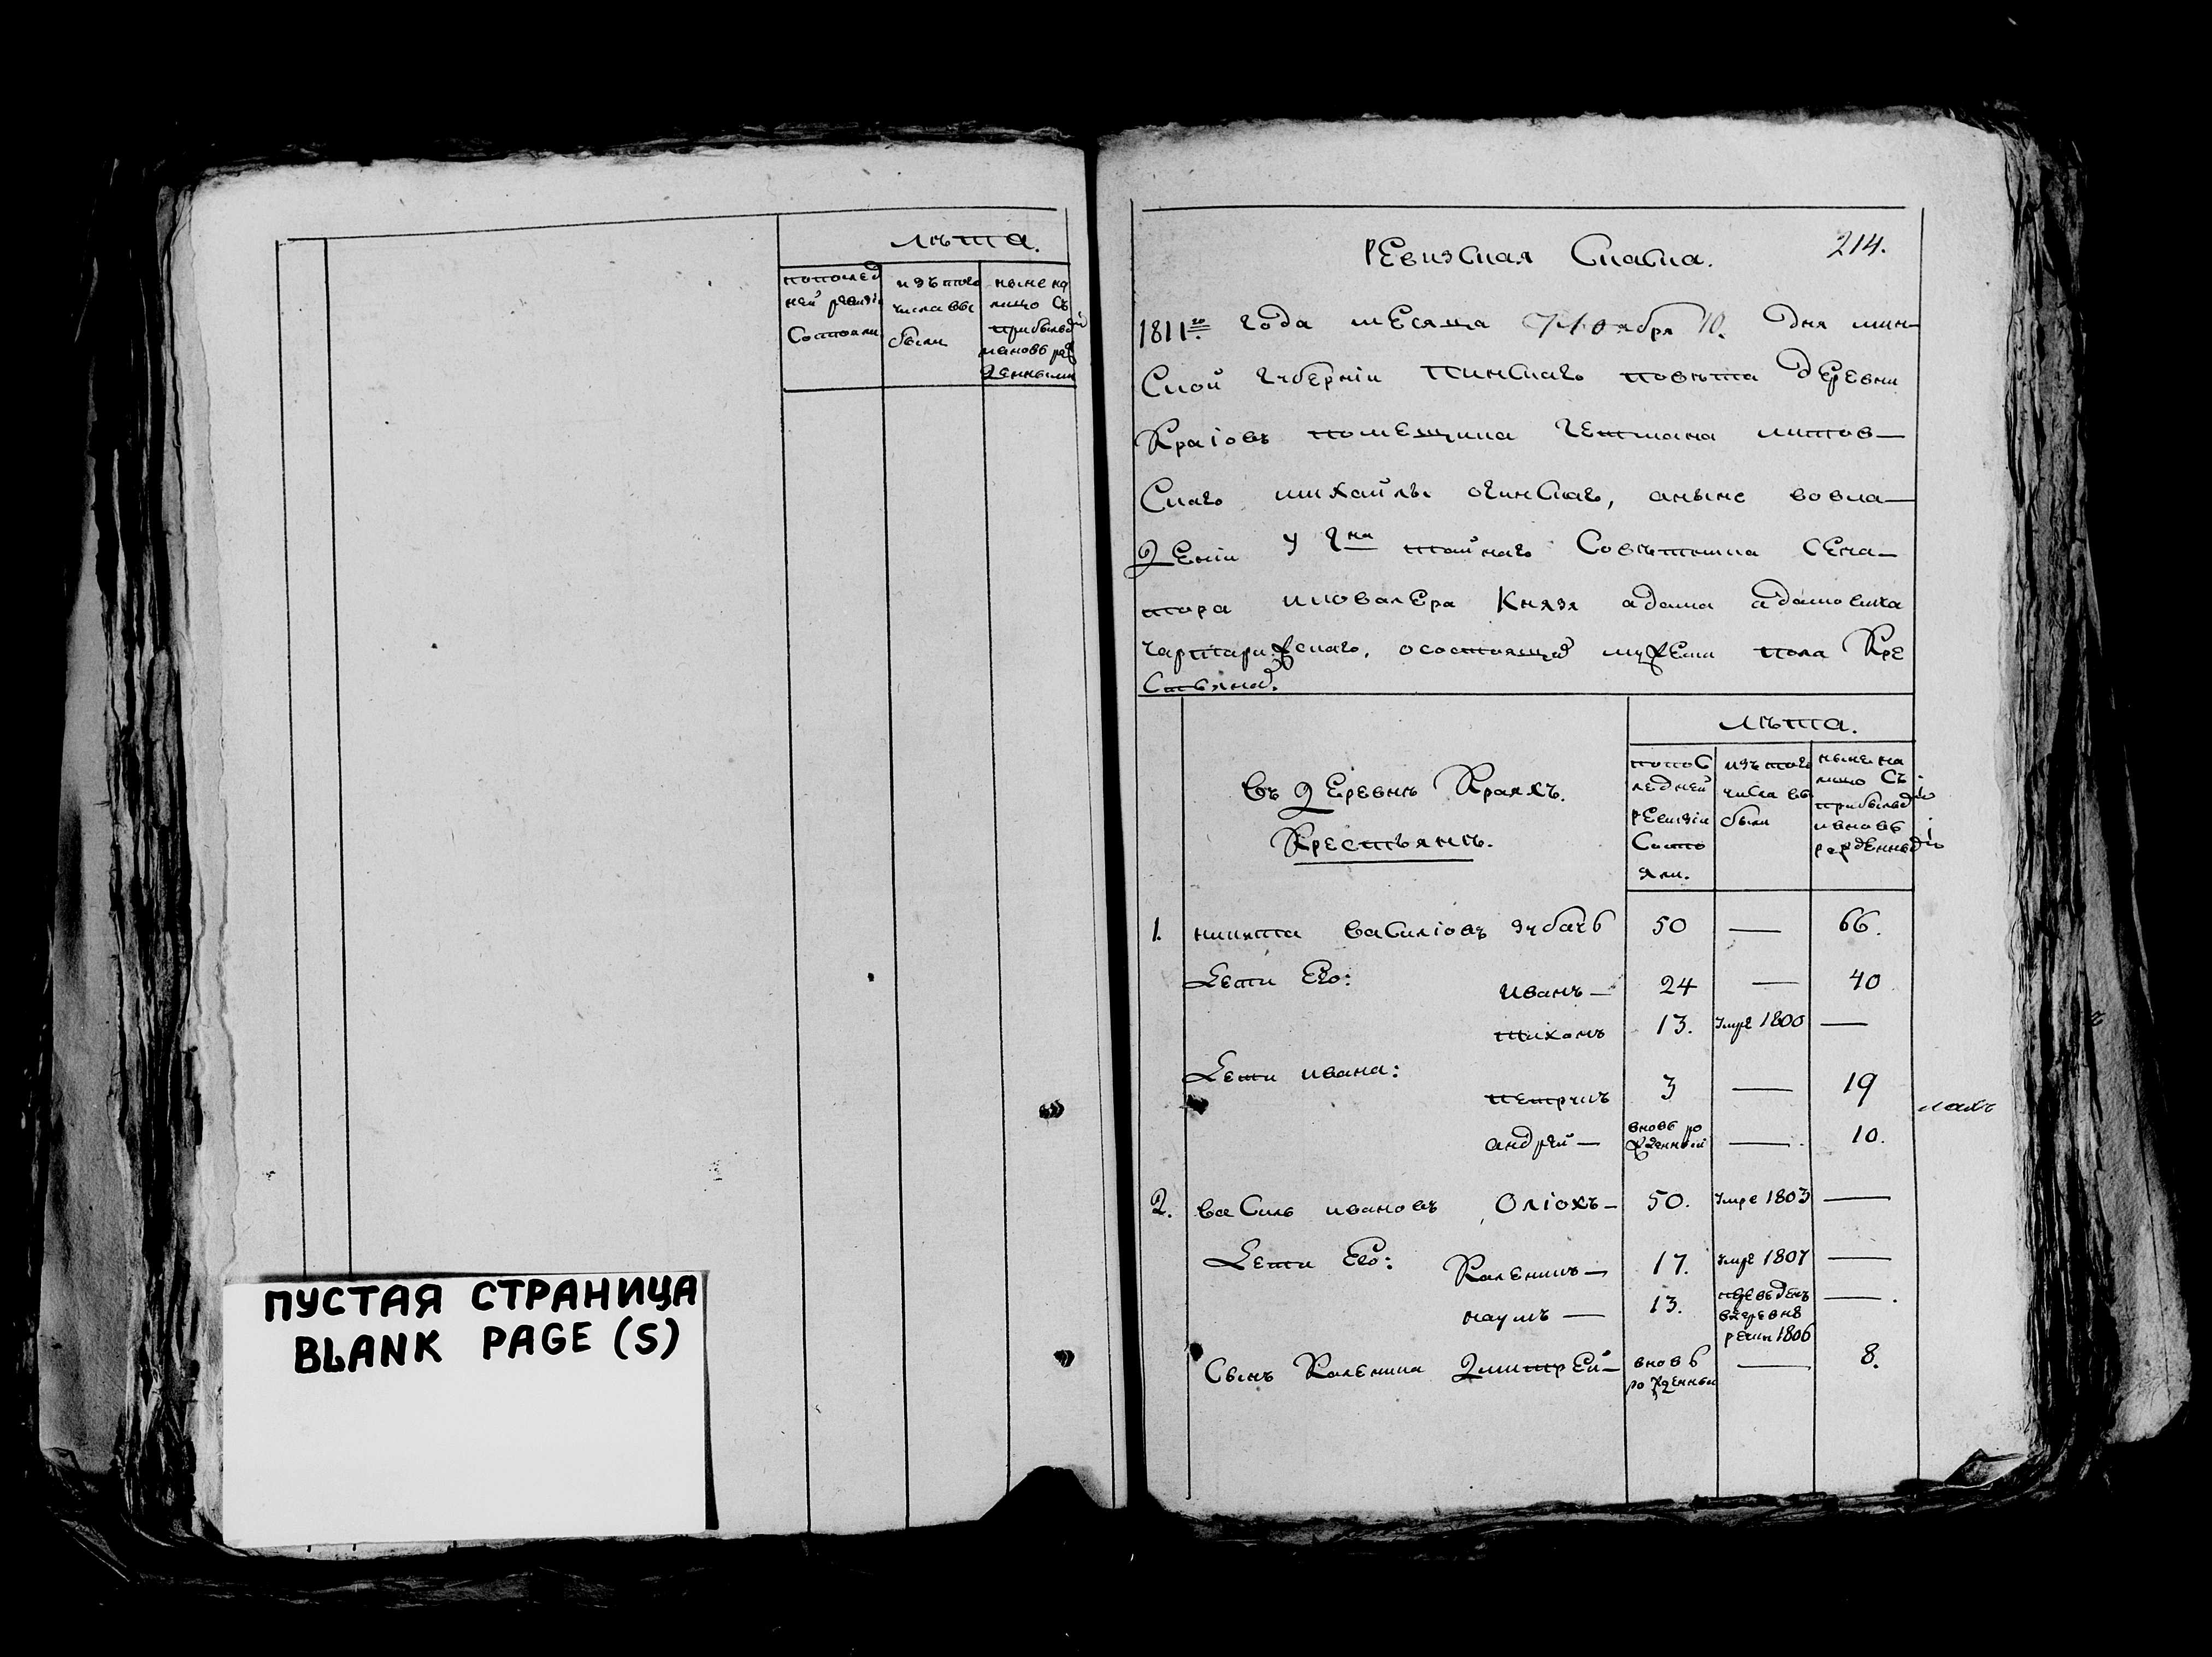 лѣта.
попослед
ней ревизіи
Состояли
изъ того
числа вы
были
ныне на
лицо Съ
прибылы
ивновь рож
денными
ПУСТАЯ СТРАНИЦА
BLANK PAGE (S)
214.
РЕвизская Сказка.
1811го года мЕсяца Ноября 10. дня мин-
Ской губерніи пинСкаго повѣта дЕревни
Краіовъ помЕщика гЕтмана литов-
Скаго михайлы огинСкаго, аныне вовла-
дЕніи у гна тайнаго Совѣтника СЕна-
тора икавалЕра Князя адама адамовича
чарторижскаго, осостоящихъ мужЕска пола КрЕ
Стьянахъ.
лѣта.
въ дЕревнѣ Краяхъ.
Крестьянъ.
попоС
ледней
рЕвизіи
Состо
яли.
изъ того
числа вы
были
ныне на
лицо Съ
прибылы
ивновь
рожденны
1. никита ваСиліовъ зубачь 50 — 66.
Дети Его:
иванъ — 24 — 40
тихонъ 13. умре 1800 —
Дети ивана:
петрукъ 3 — 19
андрей — вновь ро
жденный — 10.
2. ваСиль ивановъ Оліохъ — 50. умре 1803 —
Дети Его: Каленикъ — 17. умре 1807 —
наумъ — 13. переведенъ
вдеревню
речки 1806 —
Сынъ Каленика ДмитрЕй — вновь
рожденный — 8.